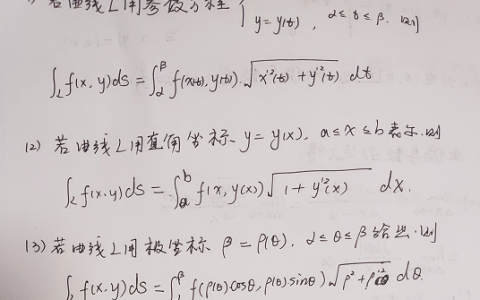 1) 若曲线L用参数方程 { y=y(t) , α≤t≤β. 则
∫_L f(x,y)ds = ∫_α^β f(x(t), y(t))·√(x'²(t)+y'²(t)) dt
(2) 若曲线L用直角坐标 y=y(x), a≤x≤b 表示.则
∫_L f(x,y)ds = ∫_a^b f(x, y(x))√(1+y'²(x)) dx.
(3) 若曲线L用极坐标 β=ρ(θ), α≤θ≤β 给出.则
∫_L f(x,y)ds = ∫^β f(ρ(θ)cosθ, ρ(θ)sinθ)√(ρ²+ρ'²) dθ